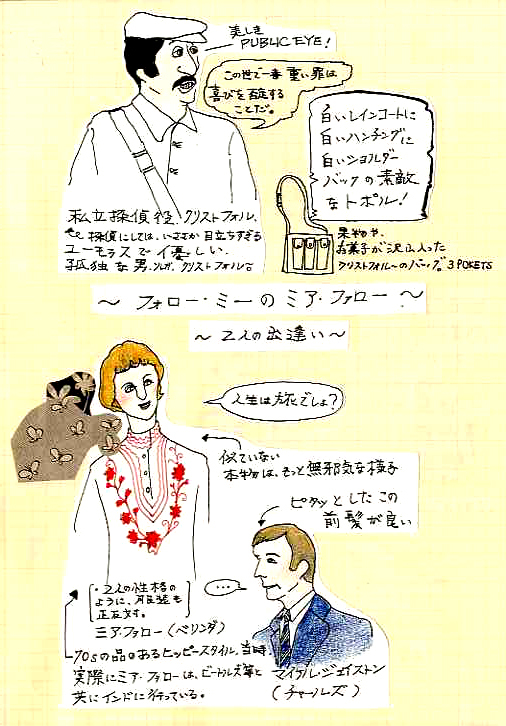 美しき
PUBLIC EYE!
この世で一番重い罪は
喜びを否定する
ことだ。
白いレインコートに
白いハンチングに
白いショルダー
バックの素敵
なトポル!
私立探偵役、クリストフォル、
探偵にしては、いささか目立ちすぎる
ユーモラスで優しい、
孤独な男、クリストフォル
果物や、
お菓子が沢山入った
クリストフォル〜のバッグ。3 POKETS
〜 フォロー・ミーのミア・ファロー 〜
〜 2人の出逢い 〜
人生は旅でしょ?
似ていない
本物は、もっと無邪気な様子
ピタッとしたこの
前髪が良い
・2人の性格の
ように、服装も
正反対。
ミア・ファロー(ベリンダ)
70sの品のあるヒッピースタイル、当時、
実際にミア・ファローは、ビートルズ等と
共にインドに行っている。
...
マイケル・ジェイストン
(チャールズ)